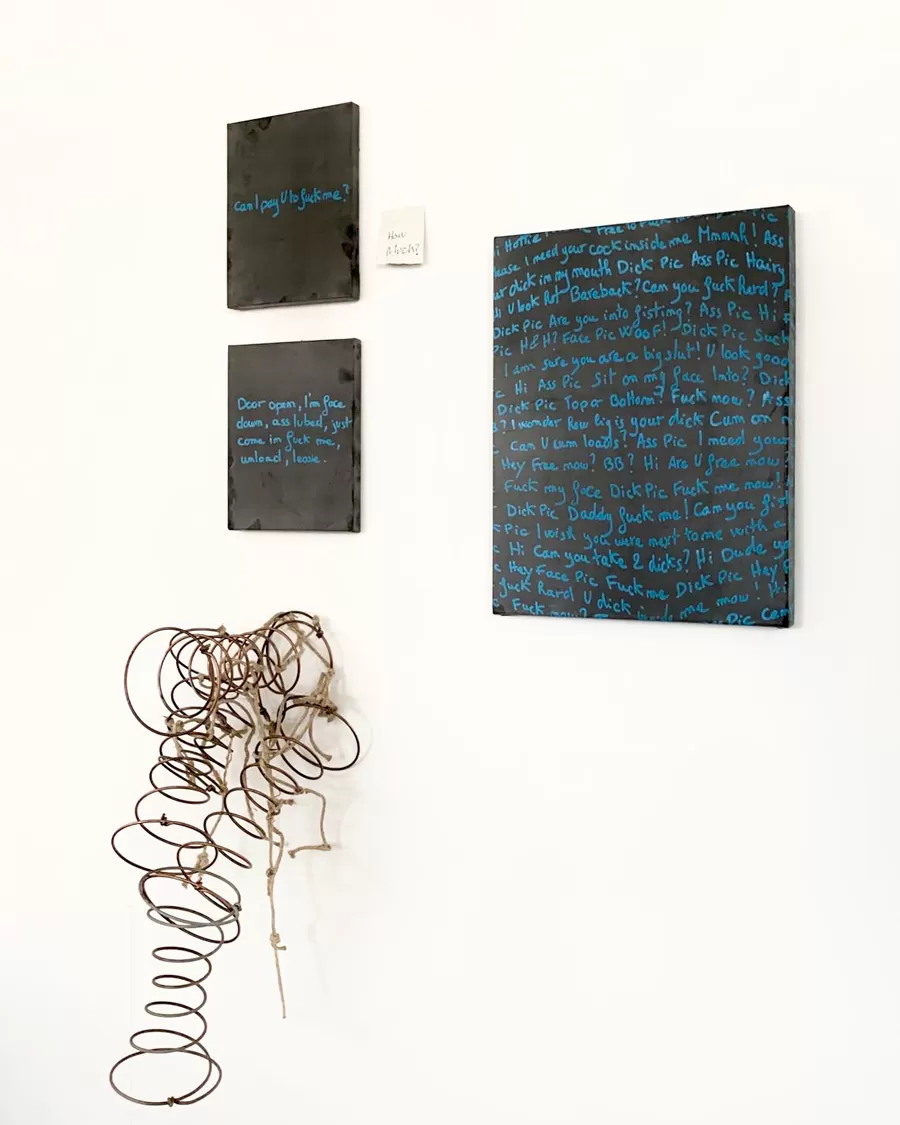 can I pay U to fuck me?
How
Much?
Door open, I'm face
down, ass lubed, just
come in fuck me,
unload, leave.
Hi Hottie Free to Fuck Pic
lease I need your cock inside me Mmmh! Ass
ur dick in my mouth Dick Pic Ass Pic Hairy
U look Hot Bareback? Can you fuck Hard?
Dick Pic Are you into fisting? Ass Pic Hi
Pic H&H? Face Pic Woof! Dick Pic Suck
I am sure you are a big slut! U look good
Hi Ass Pic Sit on my face Into? Dick
Dick Pic Top or Bottom? Fuck now? Ass
? I wonder how big is your dick Cum on
Can U cum loads? Ass Pic I need your
Hey Free now? BB? Hi Are U free now?
Fuck my face Dick Pic Fuck me now!
Dick Pic Daddy fuck me! Can you fist
Pic I wish you were next to me with a
Hi Can you take 2 dicks? Hi Dude yo
Hey Face Pic Fuck me Dick Pic Hey
fuck Hard U dick inside me now! Hi
Fuck now? inside me now Pic Can